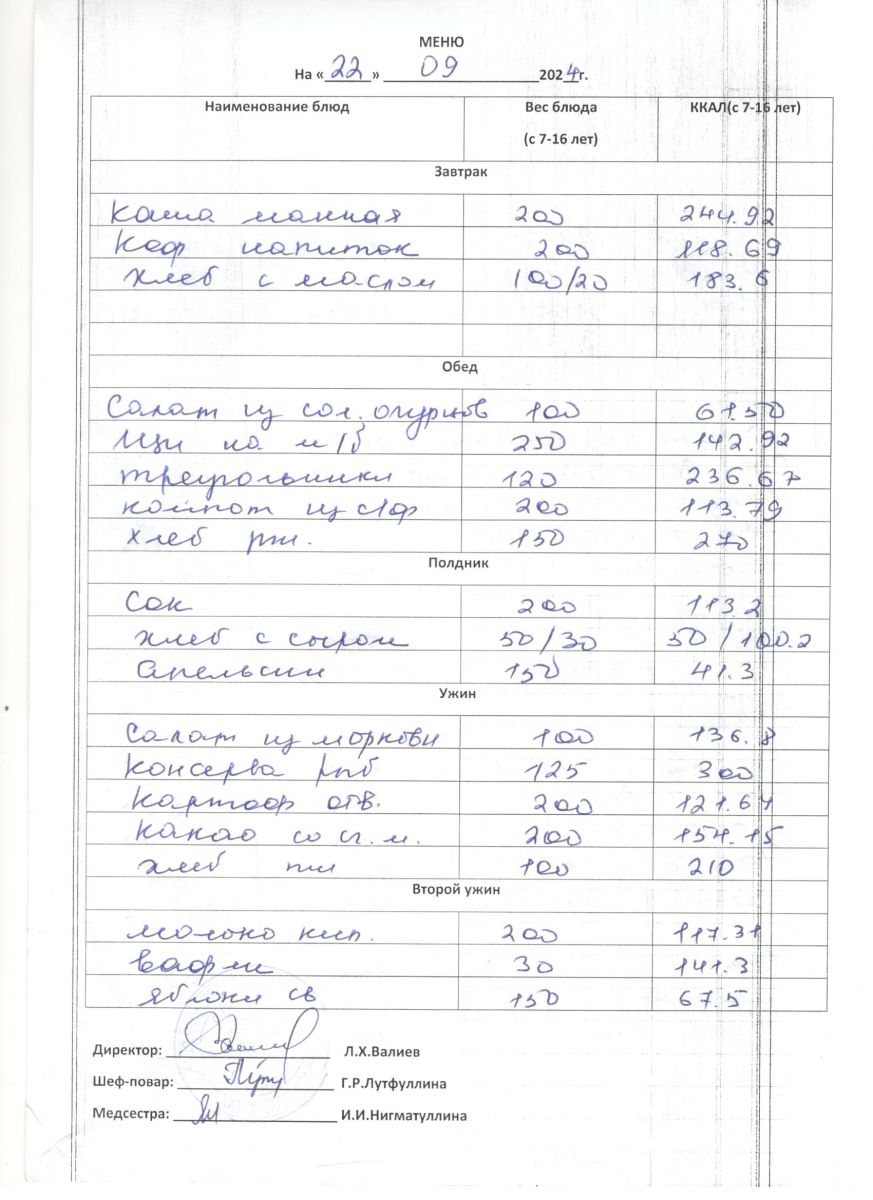 МЕНЮ
На «22» 09 2024г.
Наименование блюд Вес блюда (с 7-16 лет) ККАЛ(с 7-16 лет)
Завтрак
Каша манная 200 244.92
Коф напиток 200 118.69
Хлеб с маслом 100/20 183.6
Обед
Салат из сол. огурцов 100 61.50
Щи на м/б 250 142.92
треугольники 120 236.67
компот из с/ф 200 113.79
хлеб рж. 150 270
Полдник
Сок 200 113.2
хлеб с сыром 50/30 50/100.2
Апельсин 150 41.3
Ужин
Салат из моркови 100 136.8
Консерва рыб 125 300
Картоф отв. 200 121.64
Какао со сг.м. 200 154.15
хлеб пш 100 210
Второй ужин
молоко кип. 200 117.31
вафли 30 141.3
яблоки св 150 67.5
Директор: Л.Х.Валиев
Шеф-повар: Г.Р.Лутфуллина
Медсестра: И.И.Нигматуллина